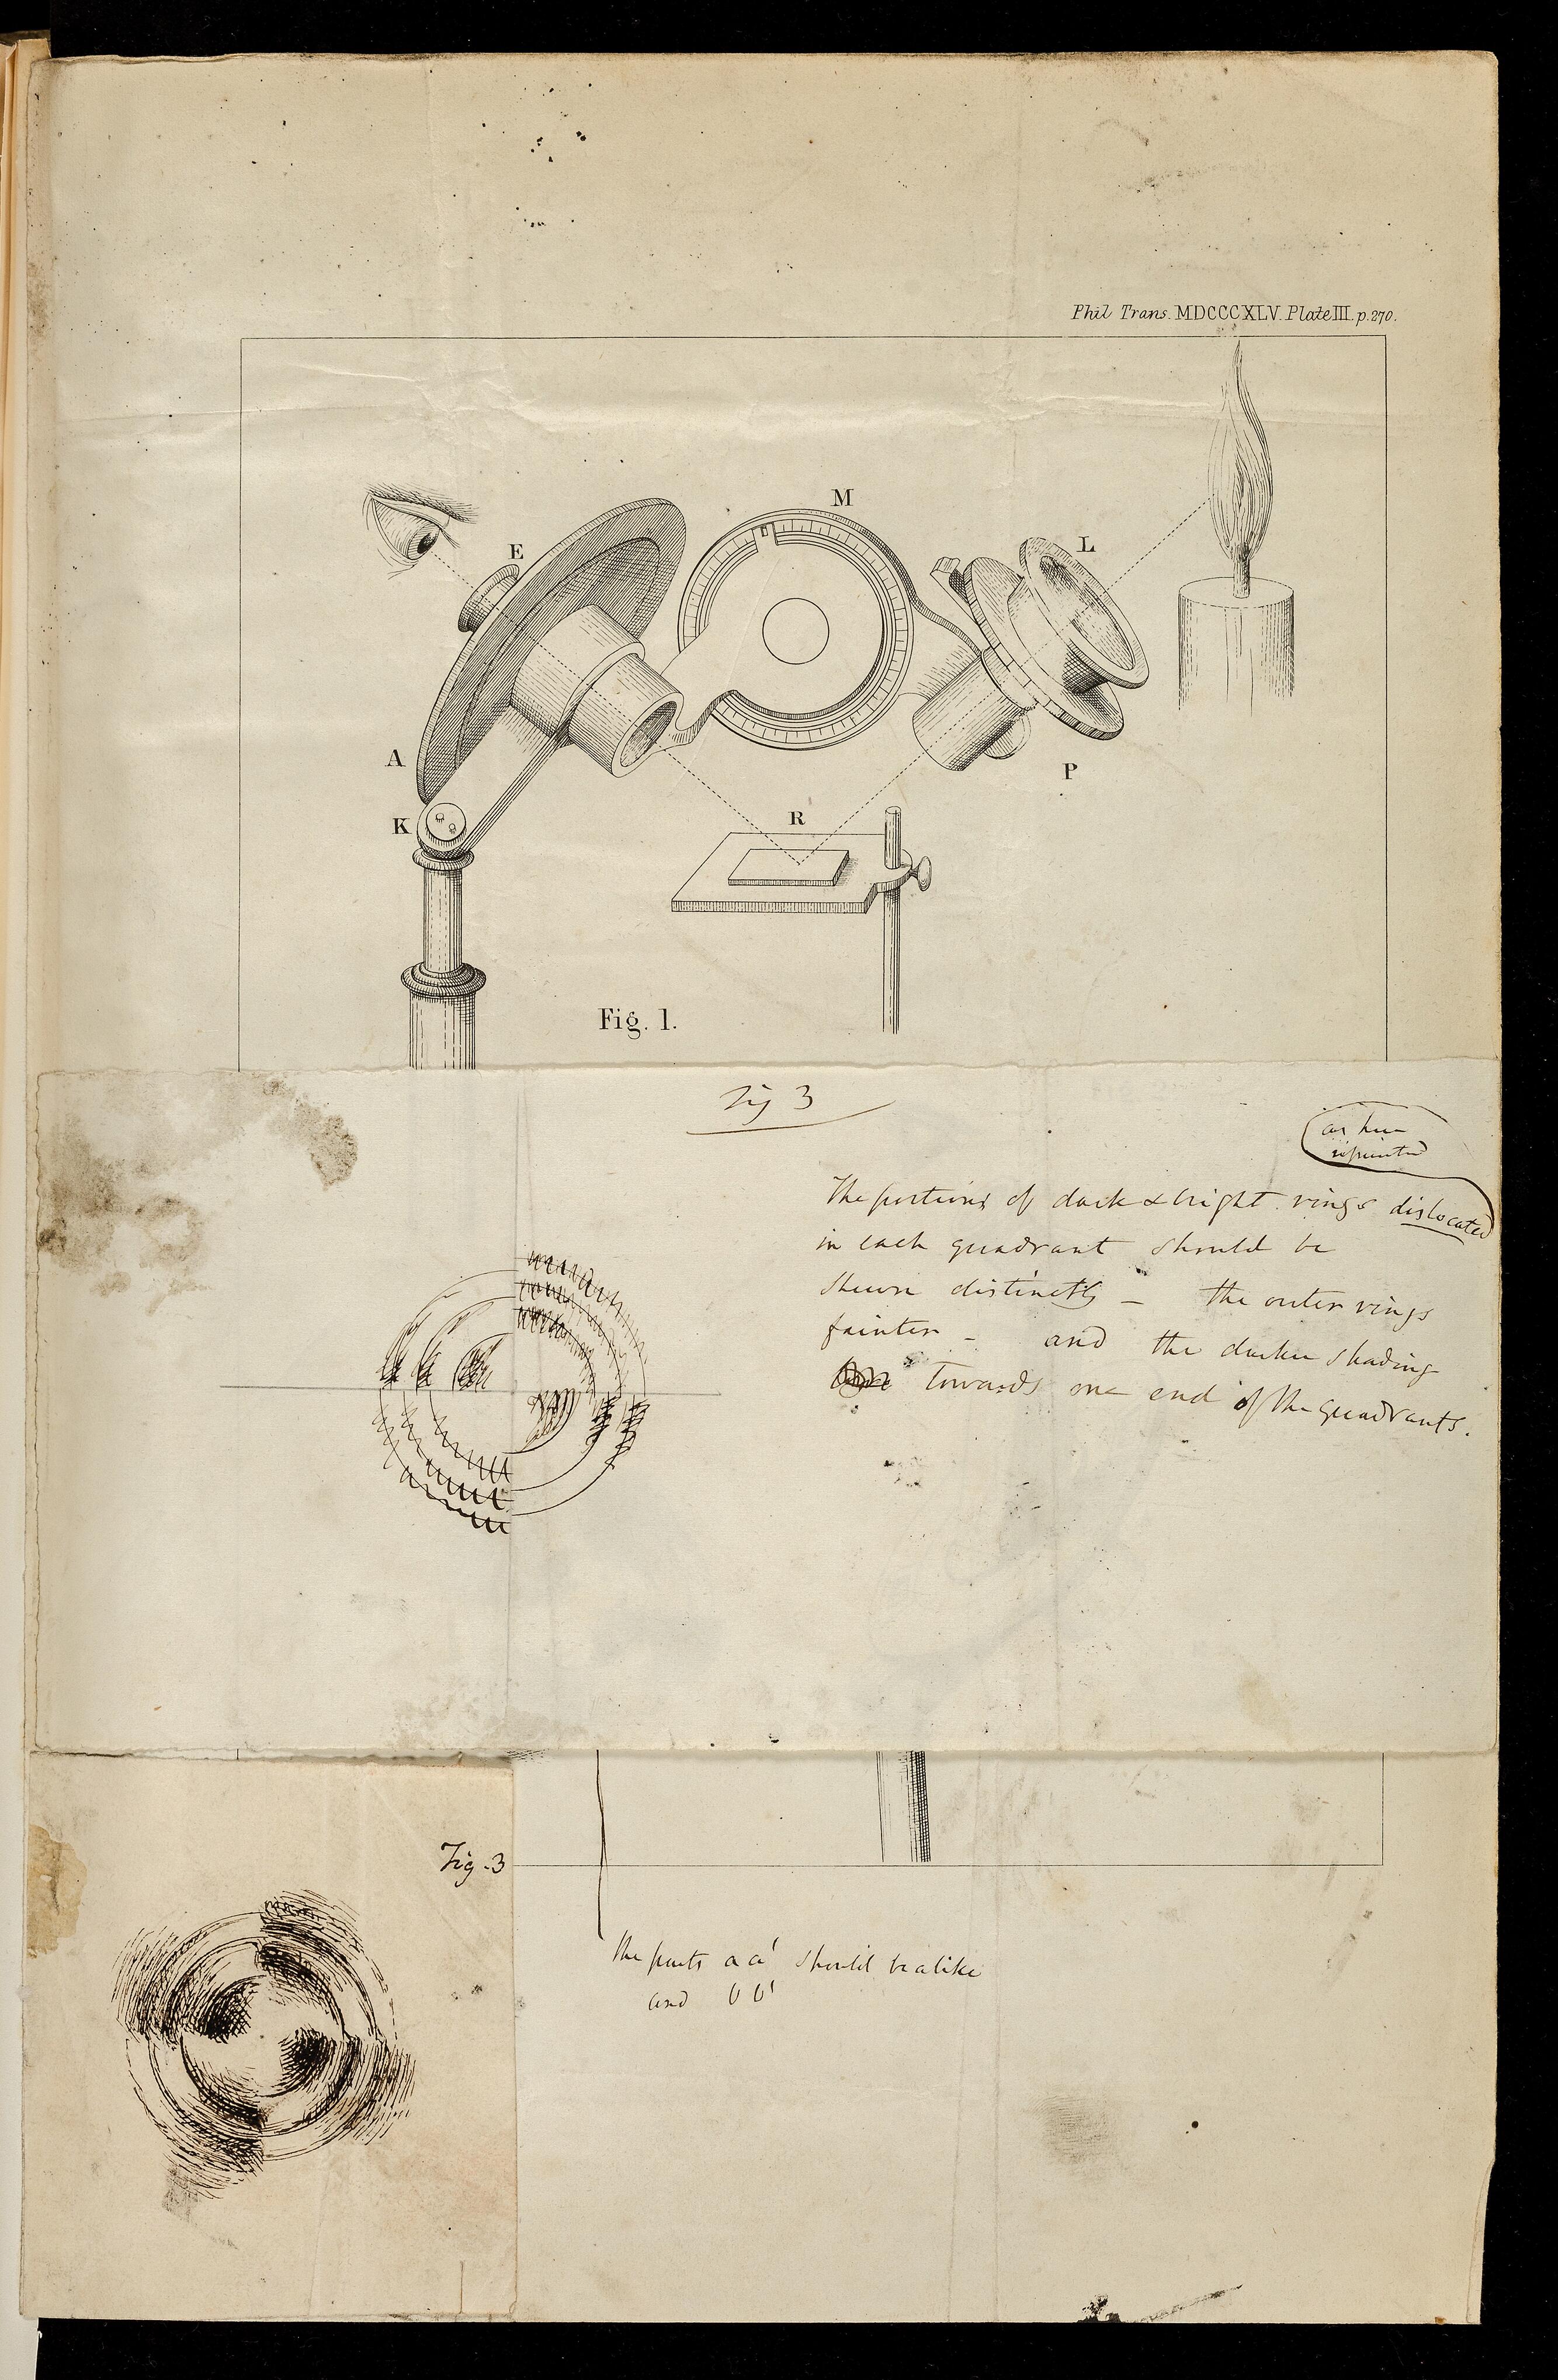 Phil Trans. MDCCCXLV. Plate III. p. 270.
M
E
L
A
P
K
R
Fig. 1.
Fig 3
as here
The portions of dark & bright rings dislocated
in each quadrant should be
shewn distinctly — the outer rings
fainter — and the darker shading
towards one end of the quadrants.
Fig. 3
The parts a a' should be alike
and b b'